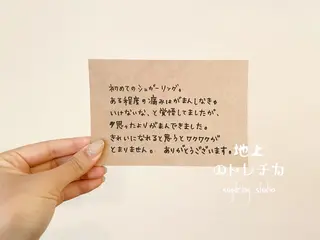 初めてのシュガーリング。
ある程度の痛みはがまんしなきゃ
いけないな、と覚悟してましたが、
思ったよりがまんできました。
きれいになれると思うとワクワクが
とまりません。 ありがとうございます。
地上
のトレチカ